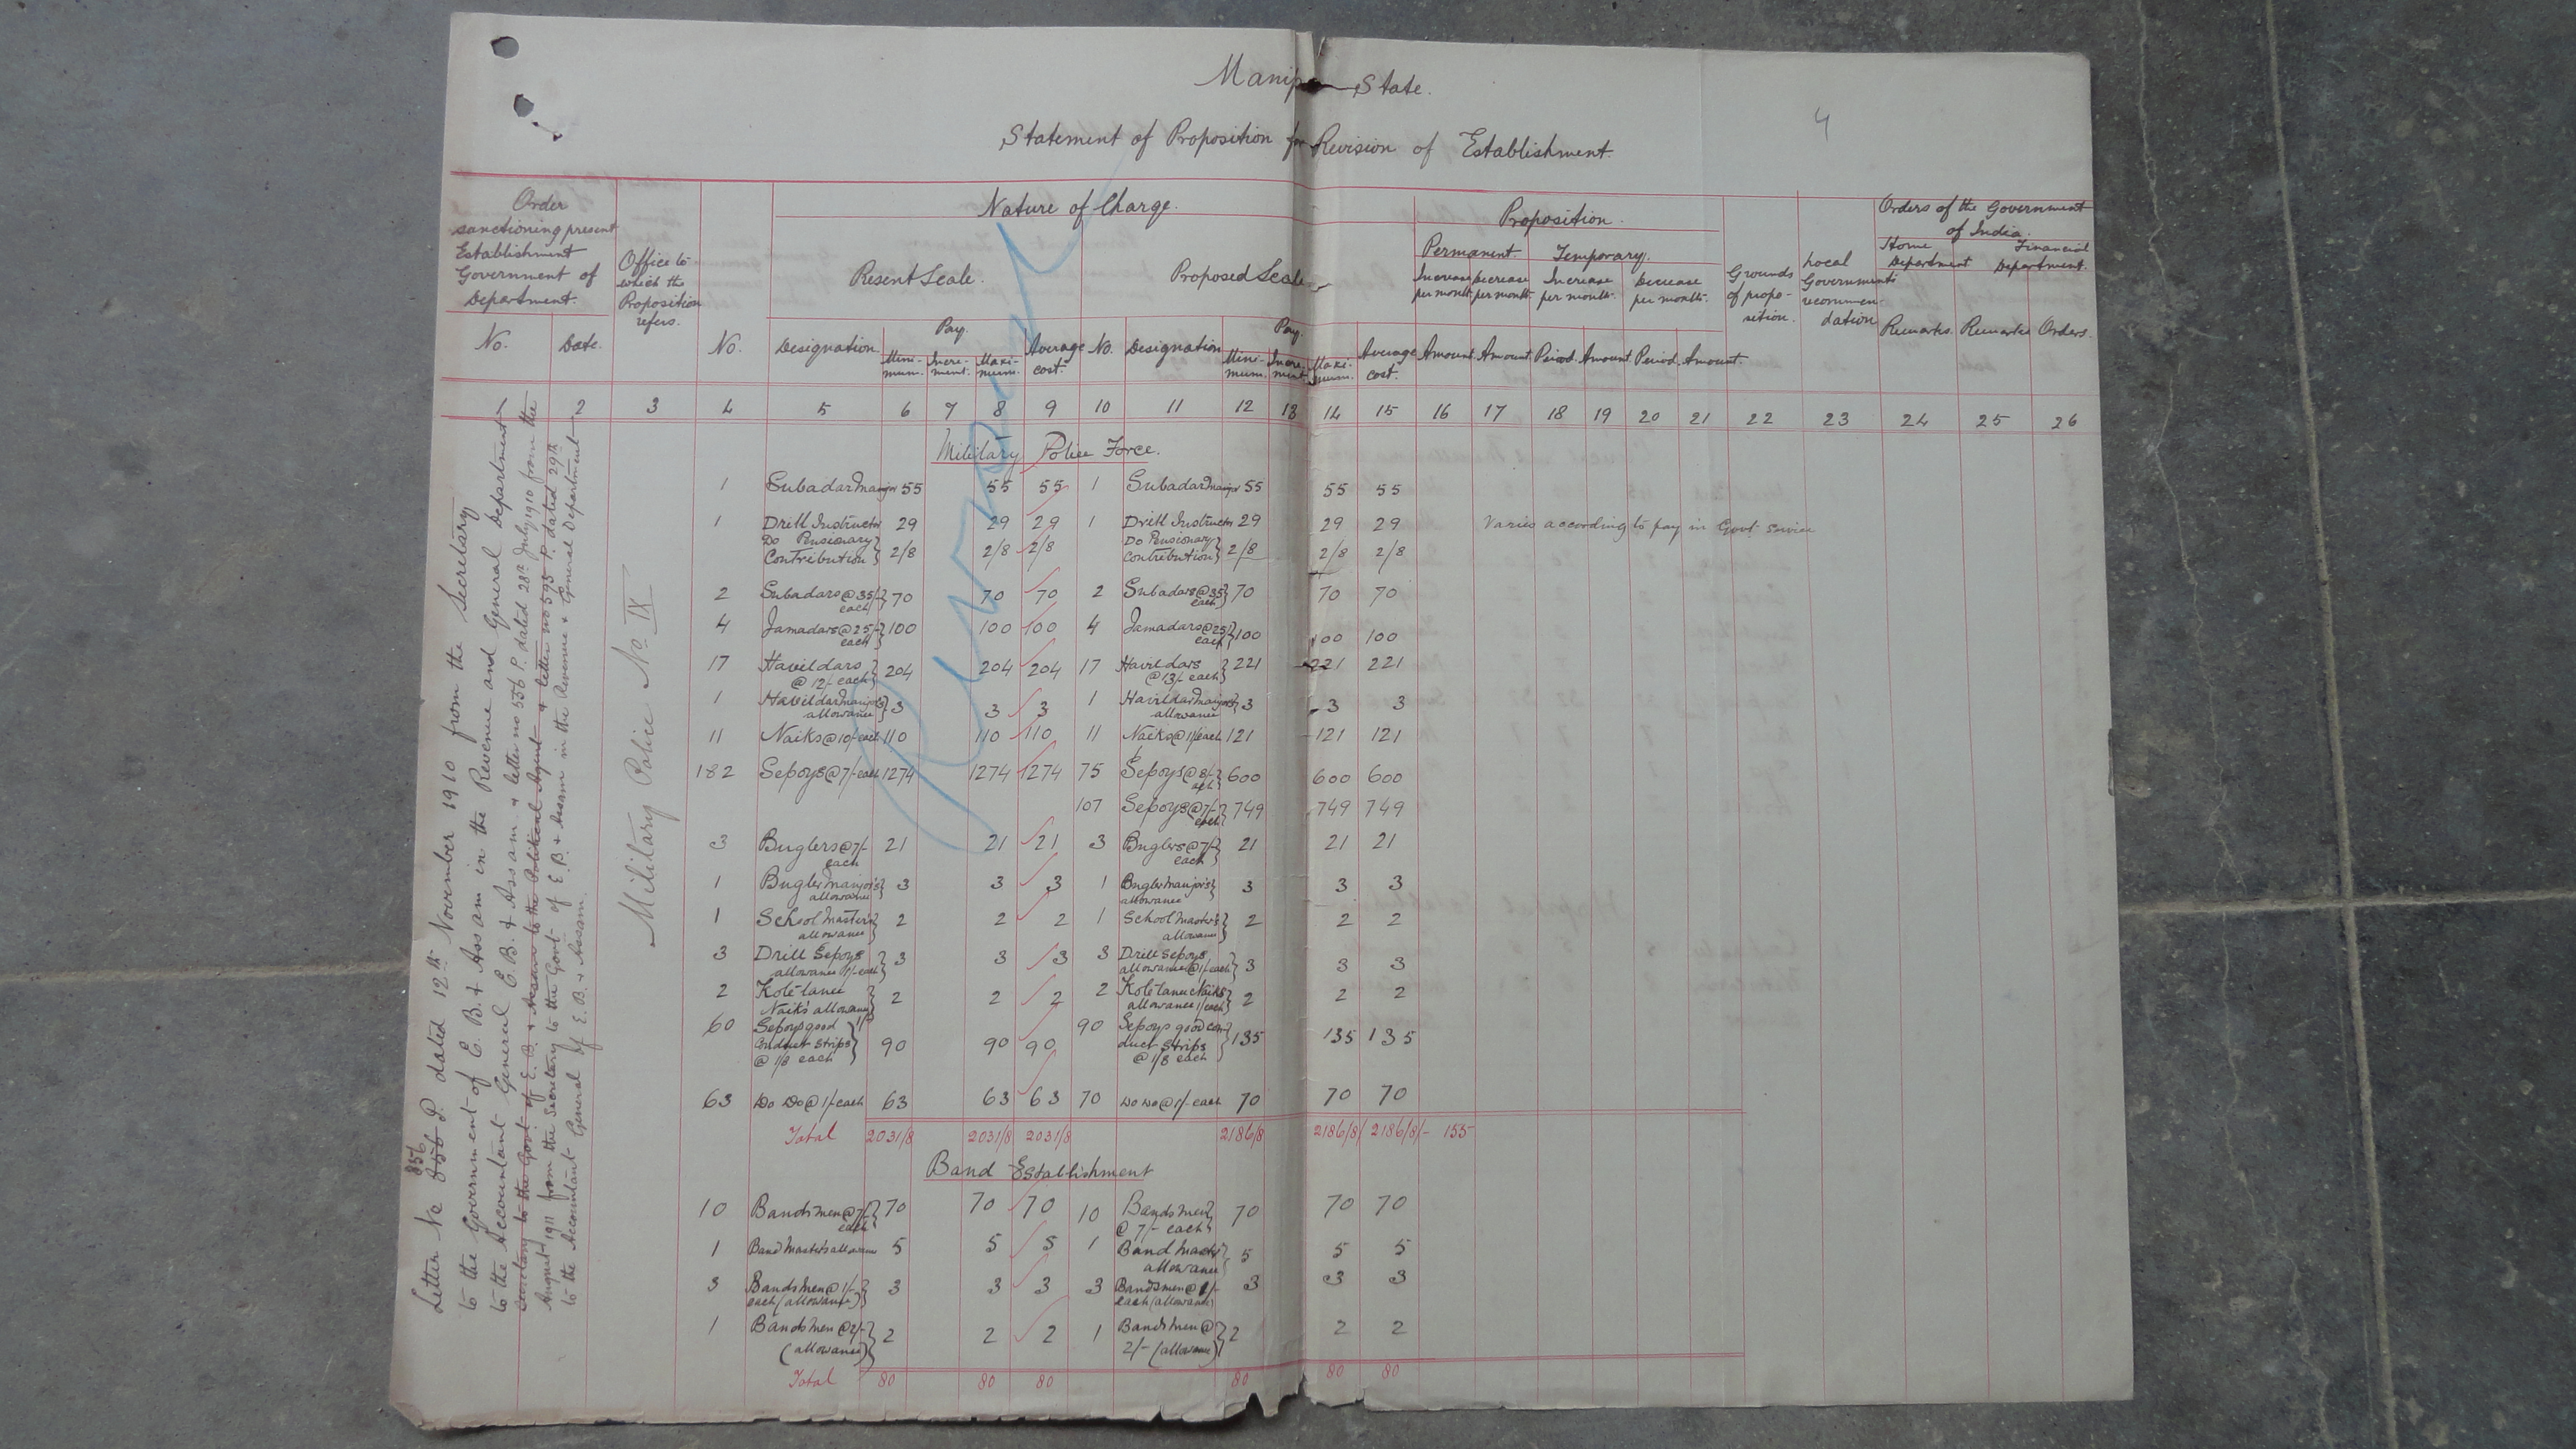 4
Manip State.
Statement of Proposition for Revision of Establishment.
Order sanctioning present Establishment Government of Department.
Office to which the Proposition refers.
Nature of Charge.
Proposition.
Orders of the Government of India.
Present Scale.
Proposed Scale
Permanent. Temporary.
Increase per month. Decrease per month. Increase per month. Decrease per month.
Grounds of proposition.
Local Governments recommendation
Home Department Financial Department.
No. Date. No. Designation Pay. Minimum. Increment. Maximum. Average cost. No. Designation Pay. Minimum. Increment. Maximum. Average cost. Amount. Amount. Period. Amount. Period. Amount. Remarks. Remarks Orders.
1 2 3 4 5 6 7 8 9 10 11 12 13 14 15 16 17 18 19 20 21 22 23 24 25 26
Letter No 856 P. dated 12th November 1910 from the Secretary
to the Government of E. B. & Assam in the Revenue and General Department
to the Accountant General E. B. & Assam & letter no 556 P. dated 28th July 1910 from the
Secretary to the Govt of E. B. & Assam to the Political Agent & letter no 595 P. dated 29th
August 1911 from the Secretary to the Govt of E. B. & Assam in the Revenue & General Department
to the Accountant General of E. B. & Assam.
Military Police No IX
Military Police Force.
1 Subadar Manjor 55 55 55 1 Subadar Manjor 55 55 55
1 Drill Instructor 29 29 29 1 Drill Instructor 29 29 29 Varies according to pay in Govt service
Do Pensionary Contribution } 2/8 2/8 2/8 Do Pensionary Contribution } 2/8 2/8 2/8
2 Subadars @ 35/- each } 70 70 70 2 Subadars @ 35 each } 70 70 70
4 Jamadars @ 25/- each } 100 100 100 4 Jamadars @ 25/ each } 100 100 100
17 Havildars @ 12/- each } 204 204 204 17 Havildars @ 13/- each } 221 221 221
1 Havildar Manjor's allowance } 3 3 3 1 Havildar Manjor's allowance } 3 3 3
11 Naiks @ 10/- each 110 110 110 11 Naiks @ 11/ each 121 121 121
182 Sepoys @ 7/- each 1274 1274 1274 75 Sepoys @ 8/- each } 600 600 600
107 Sepoys @ 7/- each } 749 749 749
3 Buglers @ 7/- each 21 21 21 3 Buglers @ 7/- each } 21 21 21
1 Bugler Manjor's allowance } 3 3 3 1 Bugler Manjor's allowance } 3 3 3
1 School Master's allowance } 2 2 2 1 School Master's allowance } 2 2 2
3 Drill Sepoys allowance 1/- each } 3 3 3 3 Drill Sepoys allowance @ 1/- each } 3 3 3
2 Kote lance Naiks' allowance 1/- } 2 2 2 2 Kote lance Naiks allowance 1/ each } 2 2 2
60 Sepoys good Conduct Strips @ 1/8 each } 90 90 90 90 Sepoys good conduct Strips @ 1/8 each } 135 135 135
63 Do Do @ 1/- each 63 63 63 70 Do Do @ 1/- each 70 70 70
Total 2031/8 2031/8 2031/8 2186/8 2186/8/ 2186/8/- 155
Band Establishment
10 Bandsmen @ 7/- each } 70 70 70 10 Bandsmen @ 7/- each } 70 70 70
1 Band Master's allowance 5 5 5 1 Band Master allowance } 5 5 5
3 Bandsmen @ 1/- each (allowance) } 3 3 3 3 Bandsmen @ 1/- each (allowance) 3 3 3
1 Bandsmen @ 2/- (allowance) } 2 2 2 1 Bandsmen @ 2/- (allowance) } 2 2 2
Total 80 80 80 80 80 80